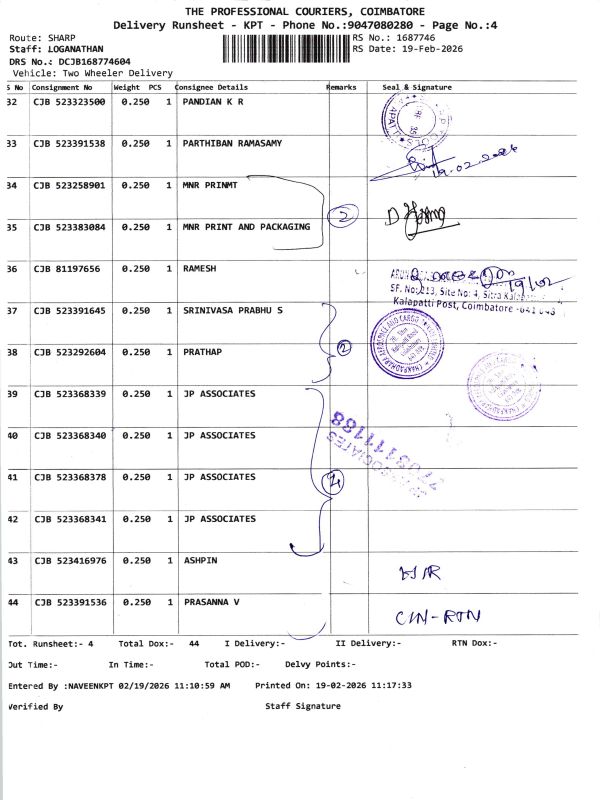 THE PROFESSIONAL COURIERS, COIMBATORE
Delivery Runsheet - KPT - Phone No.:9047080280 - Page No.:4
Route: SHARP
RS No.: 1687746
Staff: LOGANATHAN
RS Date: 19-Feb-2026
DRS No.: DCJB168774604
Vehicle: Two Wheeler Delivery
S No Consignment No Weight PCS Consignee Details Remarks Seal & Signature
32 CJB 523323500 0.250 1 PANDIAN K R
33 CJB 523391538 0.250 1 PARTHIBAN RAMASAMY
19.02.2026
34 CJB 523258901 0.250 1 MNR PRINMT
2
35 CJB 523383084 0.250 1 MNR PRINT AND PACKAGING
36 CJB 81197656 0.250 1 RAMESH
19/02
SF. No: 213, Site No: 4, Sitra Kalapatti
Kalapatti Post, Coimbatore - 641 048
37 CJB 523391645 0.250 1 SRINIVASA PRABHU S
2
38 CJB 523292604 0.250 1 PRATHAP
39 CJB 523368339 0.250 1 JP ASSOCIATES
40 CJB 523368340 0.250 1 JP ASSOCIATES
JP ASSOCIATES
41 CJB 523368378 0.250 1 JP ASSOCIATES
4
42 CJB 523368341 0.250 1 JP ASSOCIATES
43 CJB 523416976 0.250 1 ASHPIN
44 CJB 523391536 0.250 1 PRASANNA V
C/N-RTN
Tot. Runsheet:- 4 Total Dox:- 44 I Delivery:- II Delivery:- RTN Dox:-
Out Time:- In Time:- Total POD:- Delvy Points:-
Entered By :NAVEENKPT 02/19/2026 11:10:59 AM Printed On: 19-02-2026 11:17:33
Verified By Staff Signature